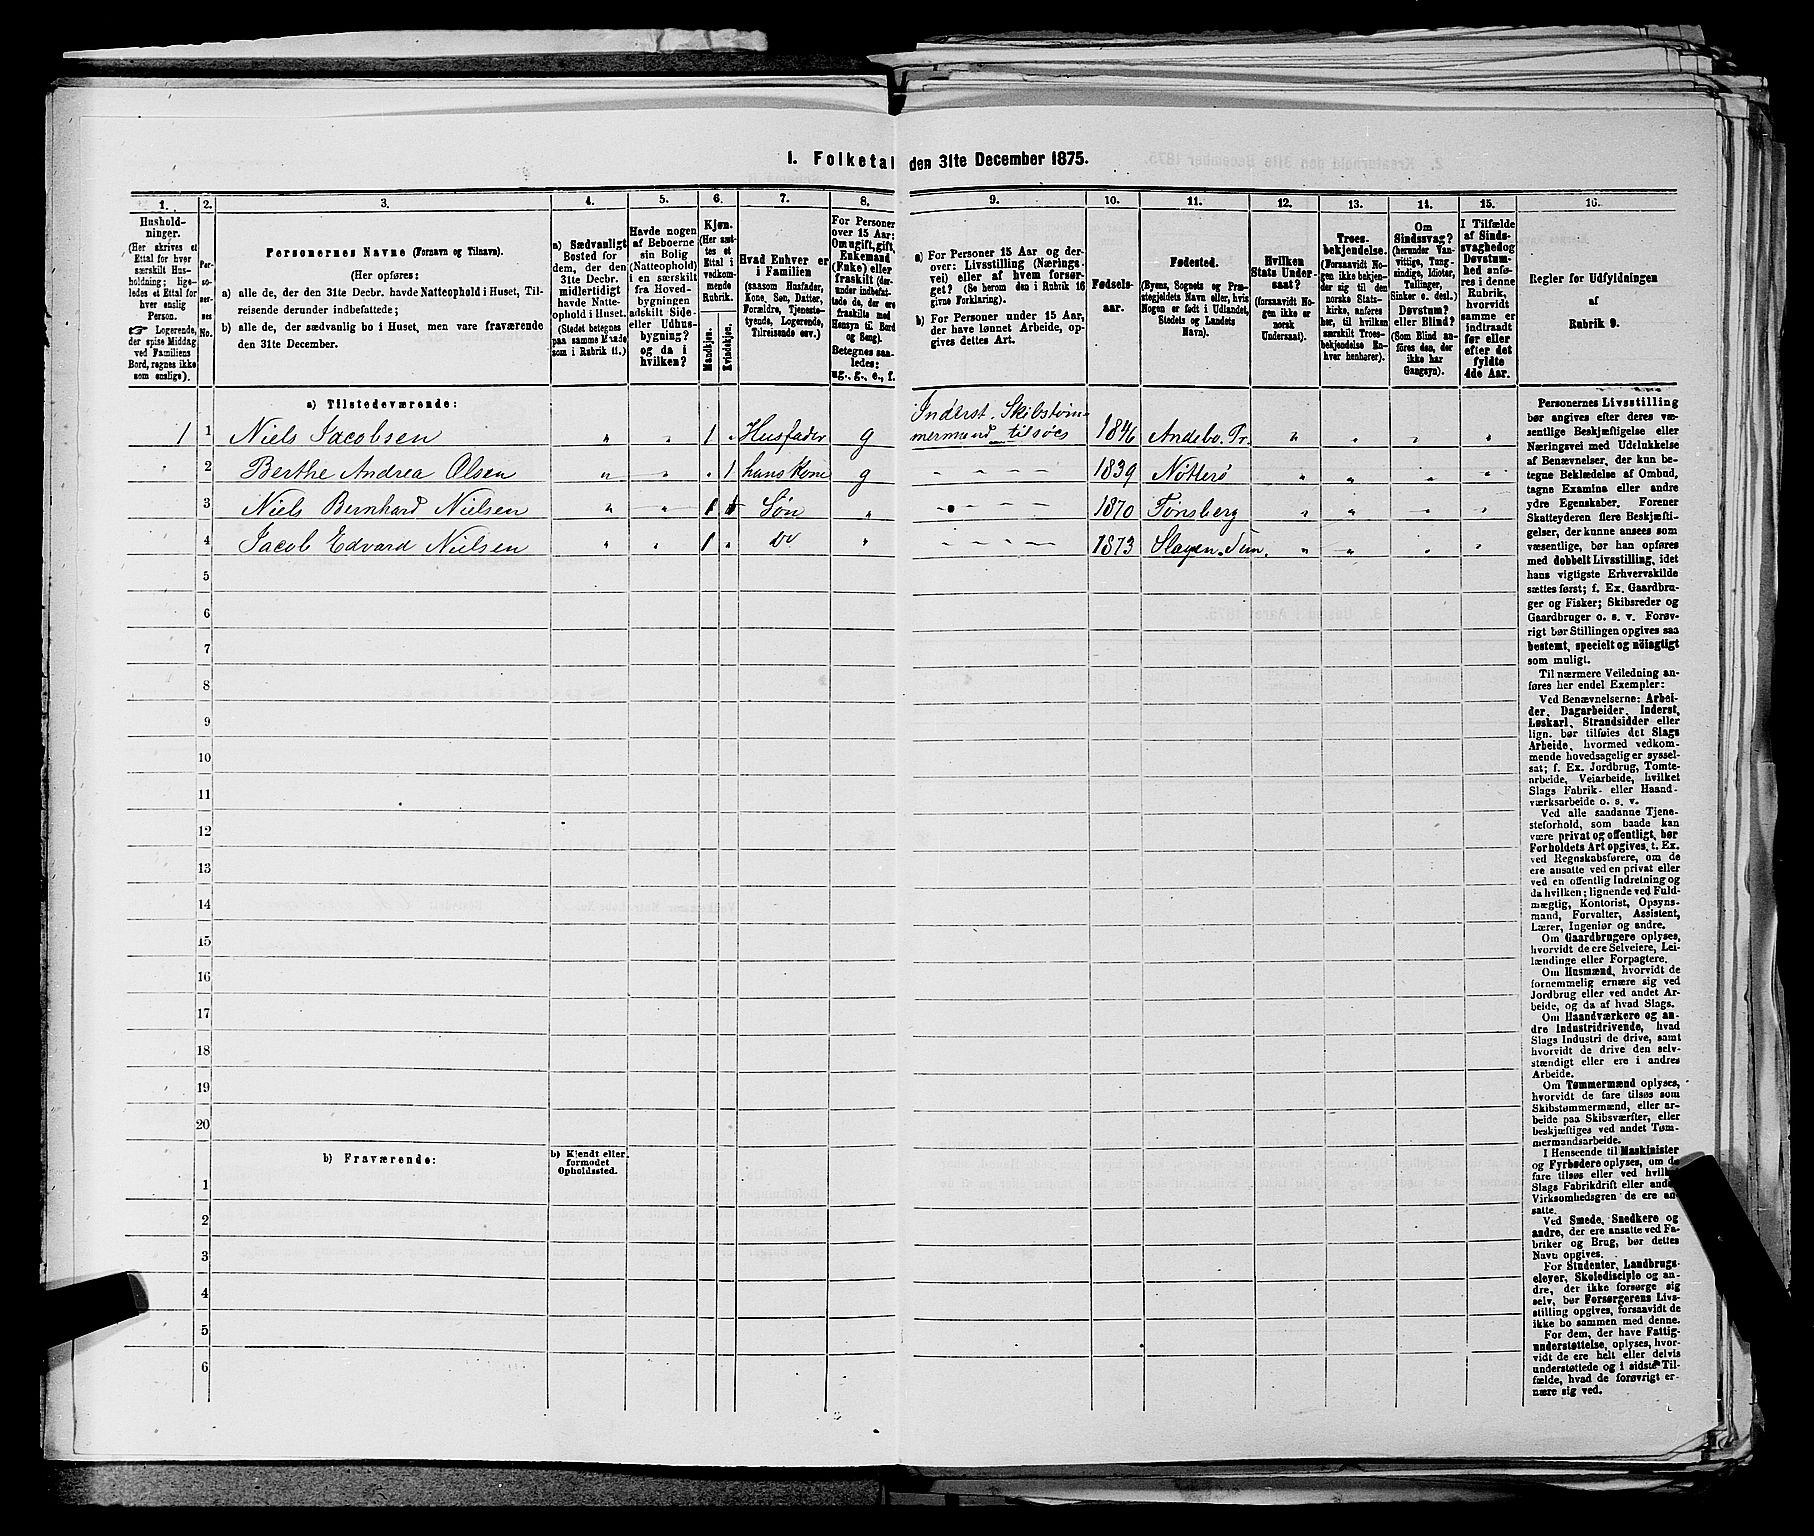 1. Folketal den 31te December 1875.
1. 2. 3. 4. 5. 6. 7. 8. 9. 10. 11. 12. 13. 14. 15. 16.
Hushold-
ninger.
(Her skrives et
Ettal for hver
særskilt Hus-
holdning; lige-
ledes et Ettal for
hver enslig
Person.
☞ Logerende,
der spise Middag
ved Familiens
Bord, regnes ikke
som enslige).
Per-
so-
ner-
nes
No.
Personernes Navne (Fornavn og Tilnavn).
(Her opføres:
a) alle de, der den 31te Decbr. havde Natteophold i Huset, Til-
reisende derunder indbefattede;
b) alle de, der sædvanlig bo i Huset, men vare fraværende
den 31te December.
a) Sædvanligt
Bosted for
dem, der den
31te Decbr.
midlertidigt
havde Natte-
ophold i Huset.
(Stedet betegnes
paa samme Maade
som i Rubrik 11.)
Havde nogen
af Beboerne
sin Bolig
(Natteophold)
i en særskilt
fra Hoved-
bygningen
adskilt Side-
eller Udhus-
bygning?
og da i
hvilken?
Kjøn.
(Her sæt-
tes et
Ettal i
vedkom-
mende
Rubrik.
Mandkjøn.
Kvindekjøn.
Hvad Enhver er
i Familien
(saasom Husfader,
Kone, Søn, Datter,
Forældre, Tjeneste-
tyende, Logerende,
Tilreisende osv.)
For Personer
over 15 Aar:
Om ugift, gift,
Enkemand
(Enke) eller
fraskilt (der-
under indbefat-
tede de, der ere
fraskilte med
Hensyn til Bord
og Seng).
Betegnes saa-
ledes:
ug., g., e., f.
a) For Personer 15 Aar og der-
over: Livsstilling (Nærings-
vei) eller af hvem forsør-
get? (Se herom den i Rubrik 16
givne Forklaring).
b) For Personer under 15 Aar,
der have lønnet Arbeide, op-
gives dettes Art.
Fødsels-
aar.
Fødested.
(Byens, Sognets og Præ-
stegjeldets Navn eller, hvis
Nogen er født i Udlandet,
Stedets og Landets
Navn).
Hvilken
Stats Under-
saat?
(forsaavidt No-
gen ikke er
norsk
Undersaat).
Troes-
bekjendelse.
(Forsaavidt No-
gen ikke bekjen-
der sig til den
norske Stats-
kirke, anføres
her, til hvilken
særskilt Troes-
bekjendelse En-
hver henhører).
Om
Sindssvag?
(herunder Van-
vittige, Tung-
sindige, Idioter,
Tullinger,
Sinker o. desl.)
Døvstum?
eller Blind?
(Som Blind an-
føres den, der
ikke har
Gangsyn).
I Tilfælde
af Sinds-
svaghed og
Døvstum-
hed anfø-
res i denne
Rubrik,
hvorvidt
samme er
indtraadt
før eller
efter det
fyldte
4de Aar.
Regler for Udfyldningen
af
Rubrik 9.
a) Tilstedeværende:
1 1 Niels Jacobsen " " 1 " Husfader g Inderst. Skibstøm-
mermand tilsøes 1846 Andebo. Pr. " " " "
2 Berthe Andrea Olsen " " " 1 hans Kone g " " " " 1839 Nøtterø " " " "
3 Niels Bernhard Nielsen " " 1 Søn " " " " " 1870 Tønsberg " " " "
4 Jacob Edvard Nielsen " " 1 " Do " " " " " 1873 Slagen. " " " "
5
6
7
8
9
10
11
12
13
14
15
16
17
18
19
20
b) Fraværende:
b) Kjendt eller
formodet
Opholdssted.
1
2
3
4
5
6
Personernes Livsstilling
bør angives efter deres væ-
sentlige Beskjæftigelse eller
Næringsvei med Udelukkelse
af Benævnelser, der kun be-
tegne Beklædelse af Ombud,
tagne Examina eller andre
ydre Egenskaber. Forener
Skatteyderen flere Beskjæfti-
gelser, der kunne ansees som
væsentlige, bør han opføres
med dobbelt Livsstilling, idet
hans vigtigste Erhvervskilde
sættes først; f. Ex. Gaardbru-
ger og Fisker; Skibsreder og
Gaardbruger o. s. v. Forøv-
rigt bør Stillingen opgives saa
bestemt, specielt og nöiagtigt
som muligt.
Til nærmere Veiledning an-
føres her endel Exempler:
Ved Benævnelserne: Arbei-
der, Dagarbeider, Inderst,
Løskarl, Strandsidder eller
lign. bør tilføies det Slags
Arbeide, hvormed vedkom-
mende hovedsagelig er syssel-
sat; f. Ex. Jordbrug, Tomte-
arbeide, Veiarbeide, hvilket
Slags Fabrik- eller Haand-
værksarbeide o. s. v.
Ved alle saadanne Tjene-
steforhold, som baade kan
være privat og offentligt, bør
Forholdets Art opgives, t. Ex.
ved Regnskabsførere, om de
ere ansatte ved en privat eller
ved en offentlig Indretning og
da hvilken; lignende ved Fuld-
mægtig, Kontorist, Opsyns-
mand, Forvalter, Assistent,
Lærer, Ingeniør og andre.
Om Gaardbrugere oplyses,
hvorvidt de ere Selveiere, Lei-
lændinge eller Forpagtere.
Om Husmænd, hvorvidt de
fornemmelig ernære sig ved
Jordbrug eller ved andet Ar-
beide, og da af hvad Slags.
Om Haandværkere og an-
dre Industridrivende, hvad
Slags Industri de drive, samt
hvorvidt de drive den selv-
stændigt eller ere i andres
Arbeide.
Om Tømmermænd oplyses,
hvorvidt de fare tilsøs som
Skibstømmermænd, eller ar-
beide paa Skibsværfter, eller
beskjæftiges ved andet Tøm-
mermandsarbeide.
I Henseende til Maskinister
og Fyrbødere oplyses, om de
fare tilsøs eller ved hvilke
Slags Fabrikdrift eller anden
Virksomhedsgren de ere an-
satte.
Ved Smede, Snedkere og
andre, der ere ansatte ved Fa-
briker og Brug, bør dettes
Navn opgives.
For Studenter, Landbrugs-
elever, Skoledisciple og an-
dre, der ikke forsørge sig
selv, bør Forsørgerens Livs-
stilling opgives, forsaavidt de
ikke bo sammen med denne.
For dem, der have Fattig-
understøttelse, oplyses, hvor-
vidt de ere helt eller delvis
understøttede og i sidste Til-
fælde, hvad de forøvrigt er-
nære sig ved.